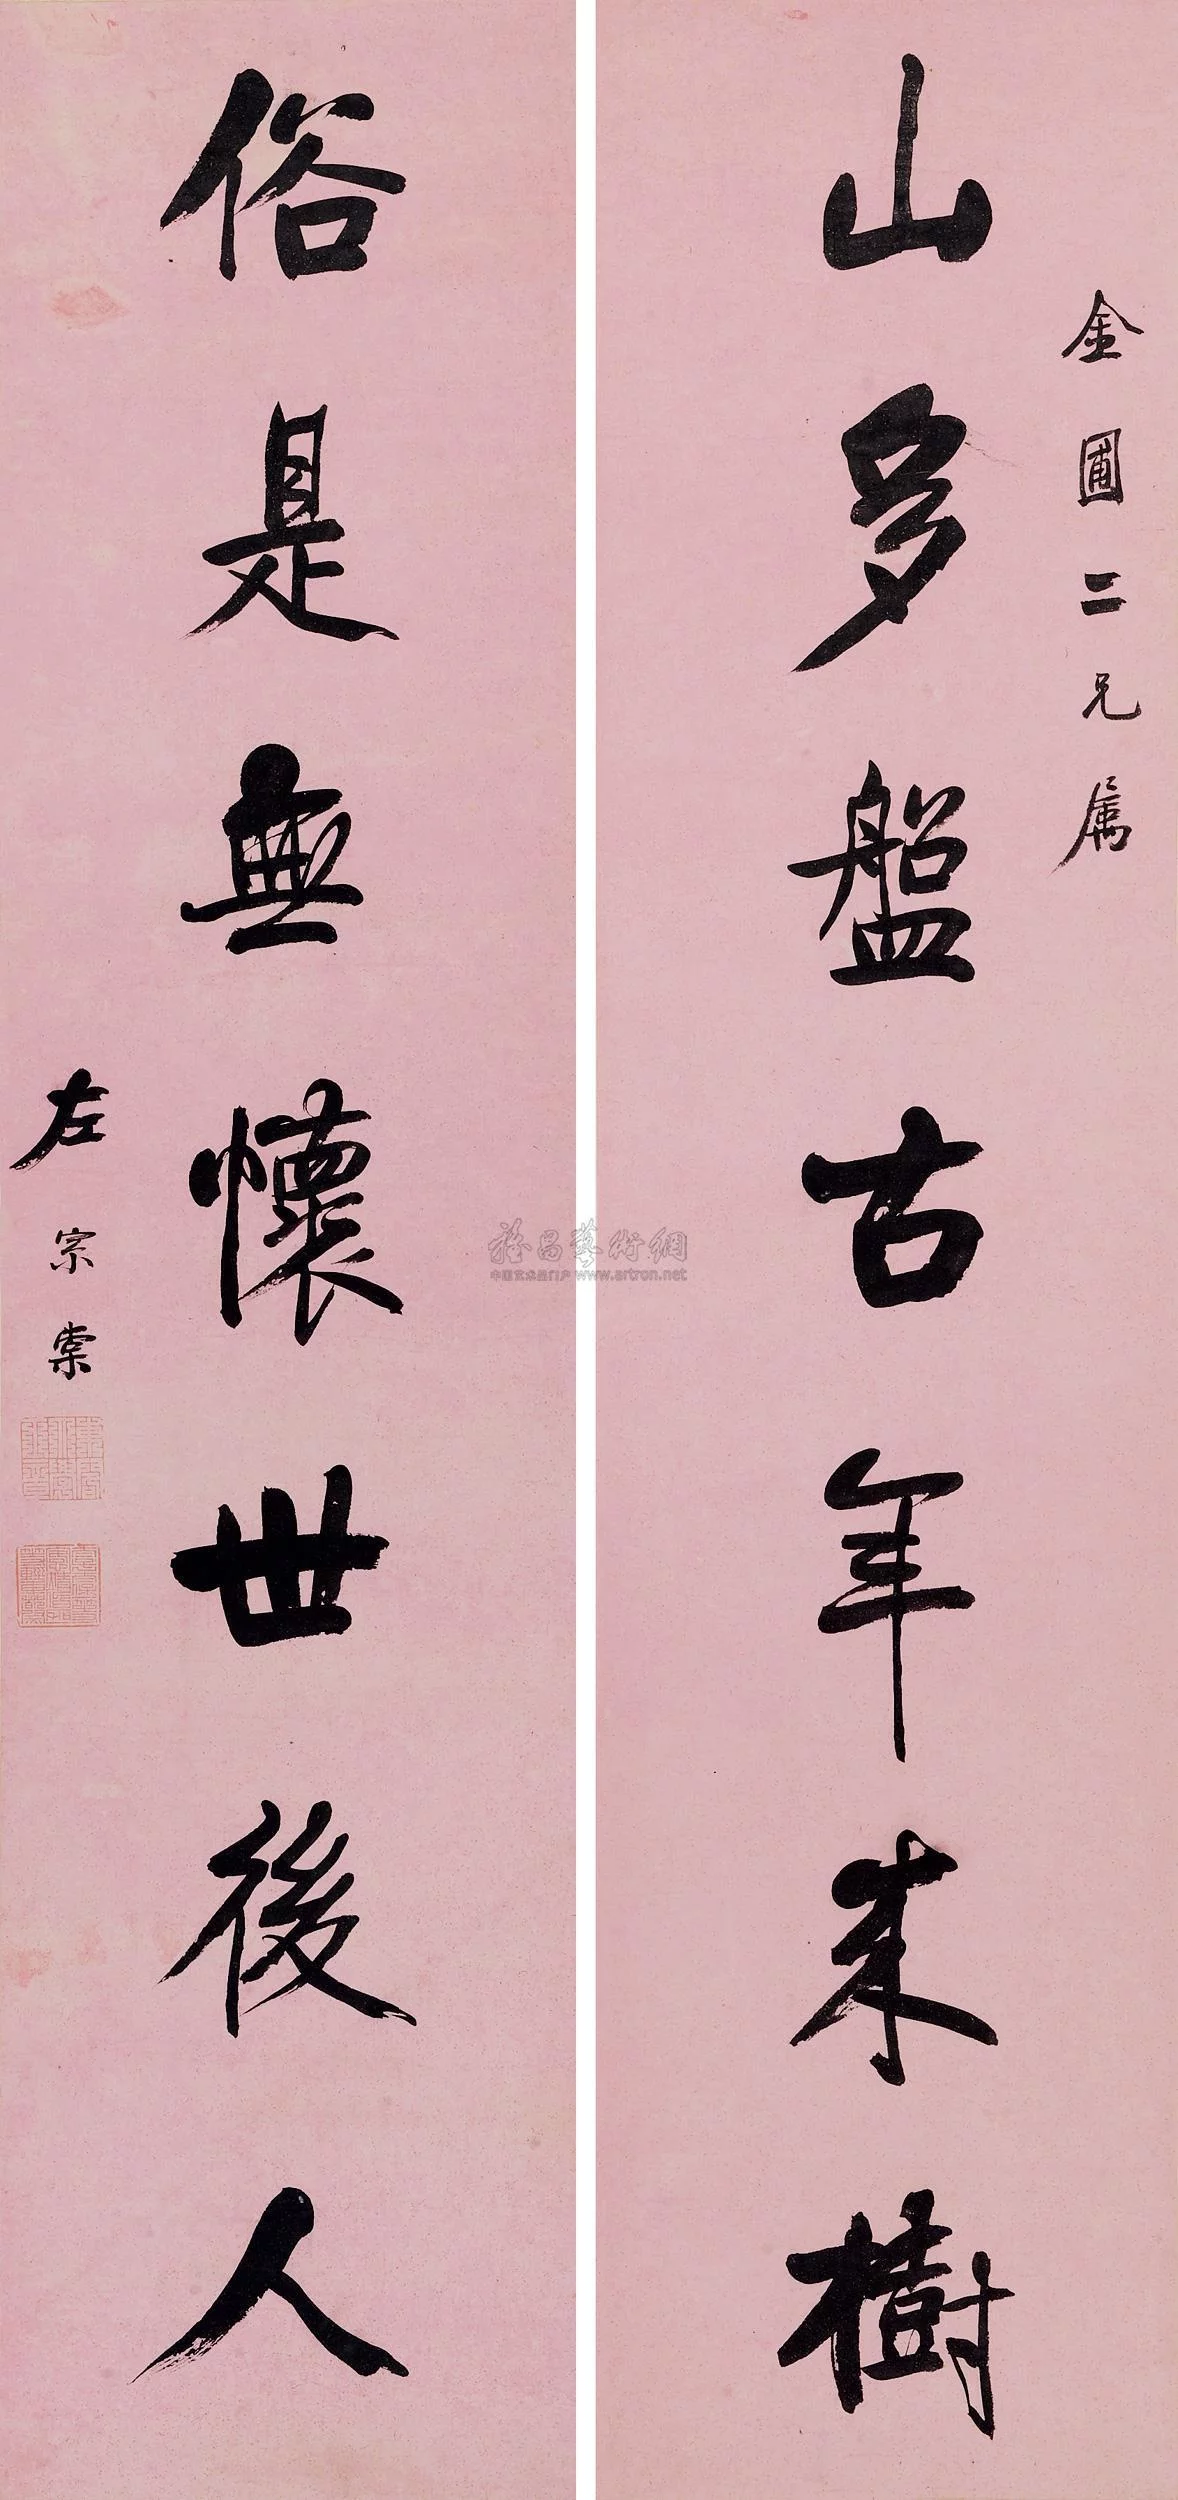 金圃二兄属
山多盤古年来樹
俗是無懷世後人
左宗棠
雅昌藝術網
中国艺术品门户 www.artron.net